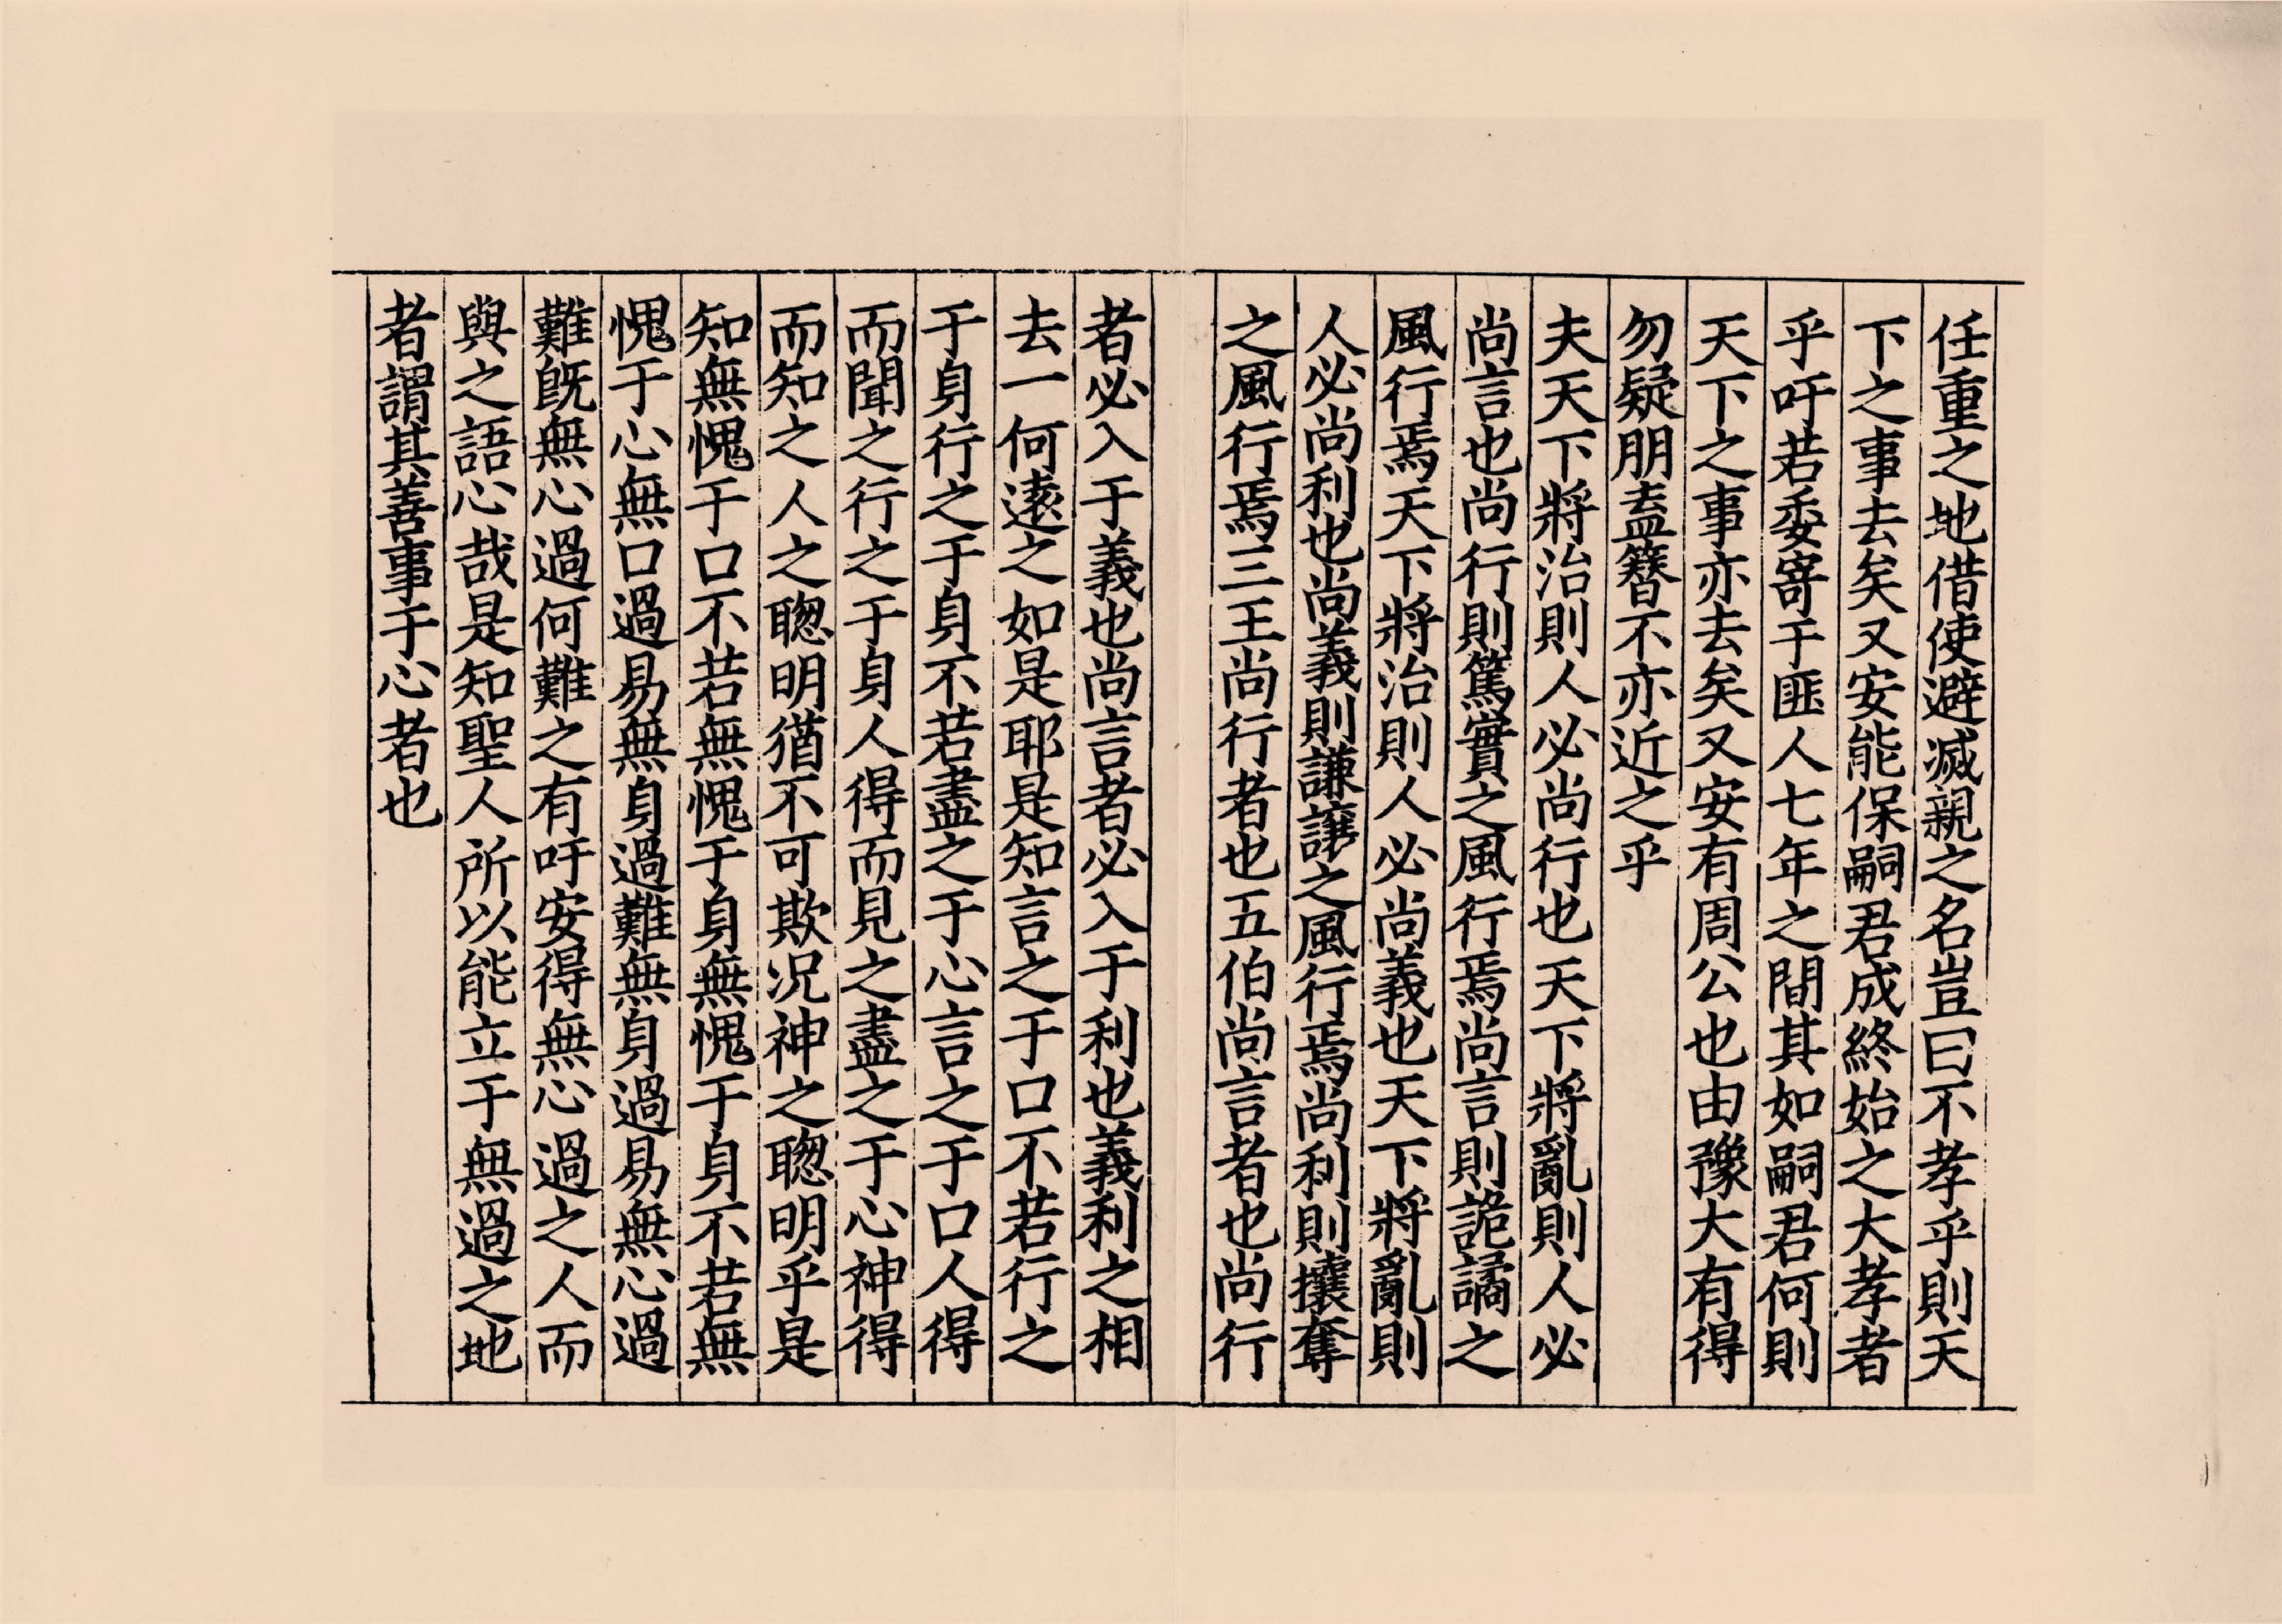 任重之地借使避滅親之名豈曰不孝乎則天
下之事去矣又安能保嗣君成終始之大孝者
乎吁若委寄于匪人七年之間其如嗣君何則
天下之事亦去矣又安有周公也由豫大有得
勿疑朋盍簪不亦近之乎
夫天下將治則人必尚行也天下將亂則人必
尚言也尚行則篤實之風行焉尚言則詭譎之
風行焉天下將治則人必尚義也天下將亂則
人必尚利也尚義則謙讓之風行焉尚利則攘奪
之風行焉三王尚行者也五伯尚言者也尚行
者必入于義也尚言者必入于利也義利之相
去一何遠之如是耶是知言之于口不若行之
于身行之于身不若盡之于心言之于口人得
而聞之行之于身人得而見之盡之于心神得
而知之人之聦明猶不可欺况神之聦明乎是
知無愧于口不若無愧于身無愧于身不若無
愧于心無口過易無身過難無身過易無心過
難旣無心過何難之有吁安得無心過之人而
與之語心哉是知聖人所以能立于無過之地
者謂其善事于心者也